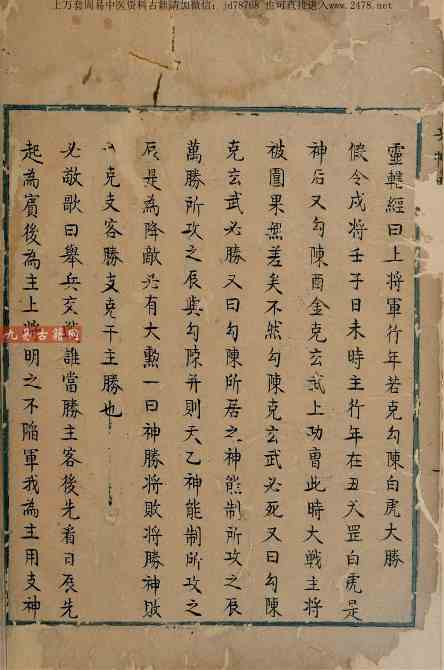 上万套周易中医资料古籍请加微信：jd78708 也可直接进入www.2478.net
靈轄經曰上將軍行年若克勾陳白虎大勝
假令戌將壬子日未時主行年在丑天罡白虎是
神后又勾陳酉金克玄武上功曹此時大戰主將
被圍果無差矣不然勾陳克玄武必死又曰勾陳
克玄武必勝又曰勾陳所居之神能制所攻之辰
萬勝所攻之辰與勾陳并則天乙神能制所攻之
辰是為降敵必有大勲一曰神勝將敗將勝神敗
克支客勝支克干主勝也
必敵歌曰舉兵交 誰當勝主客後先看日辰先
起為賓後為主上將明之不陷軍我為主用支神
九 古籍网